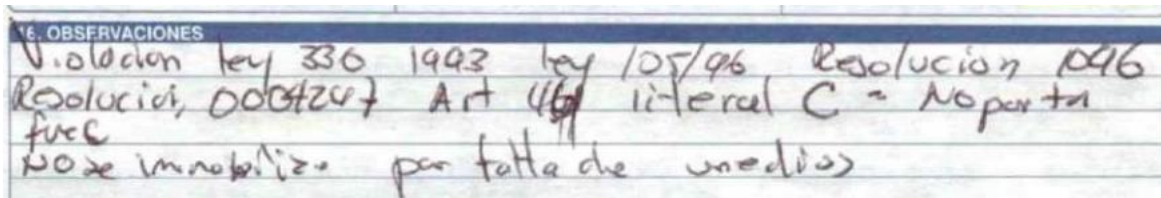 16. OBSERVACIONES
Violacion ley 336 1993 ley 105/96 Resolucion 1096
Resolucion 0004247 Art 49 literal C - No porta
fuec
NO se inmobiliza por falta de medios